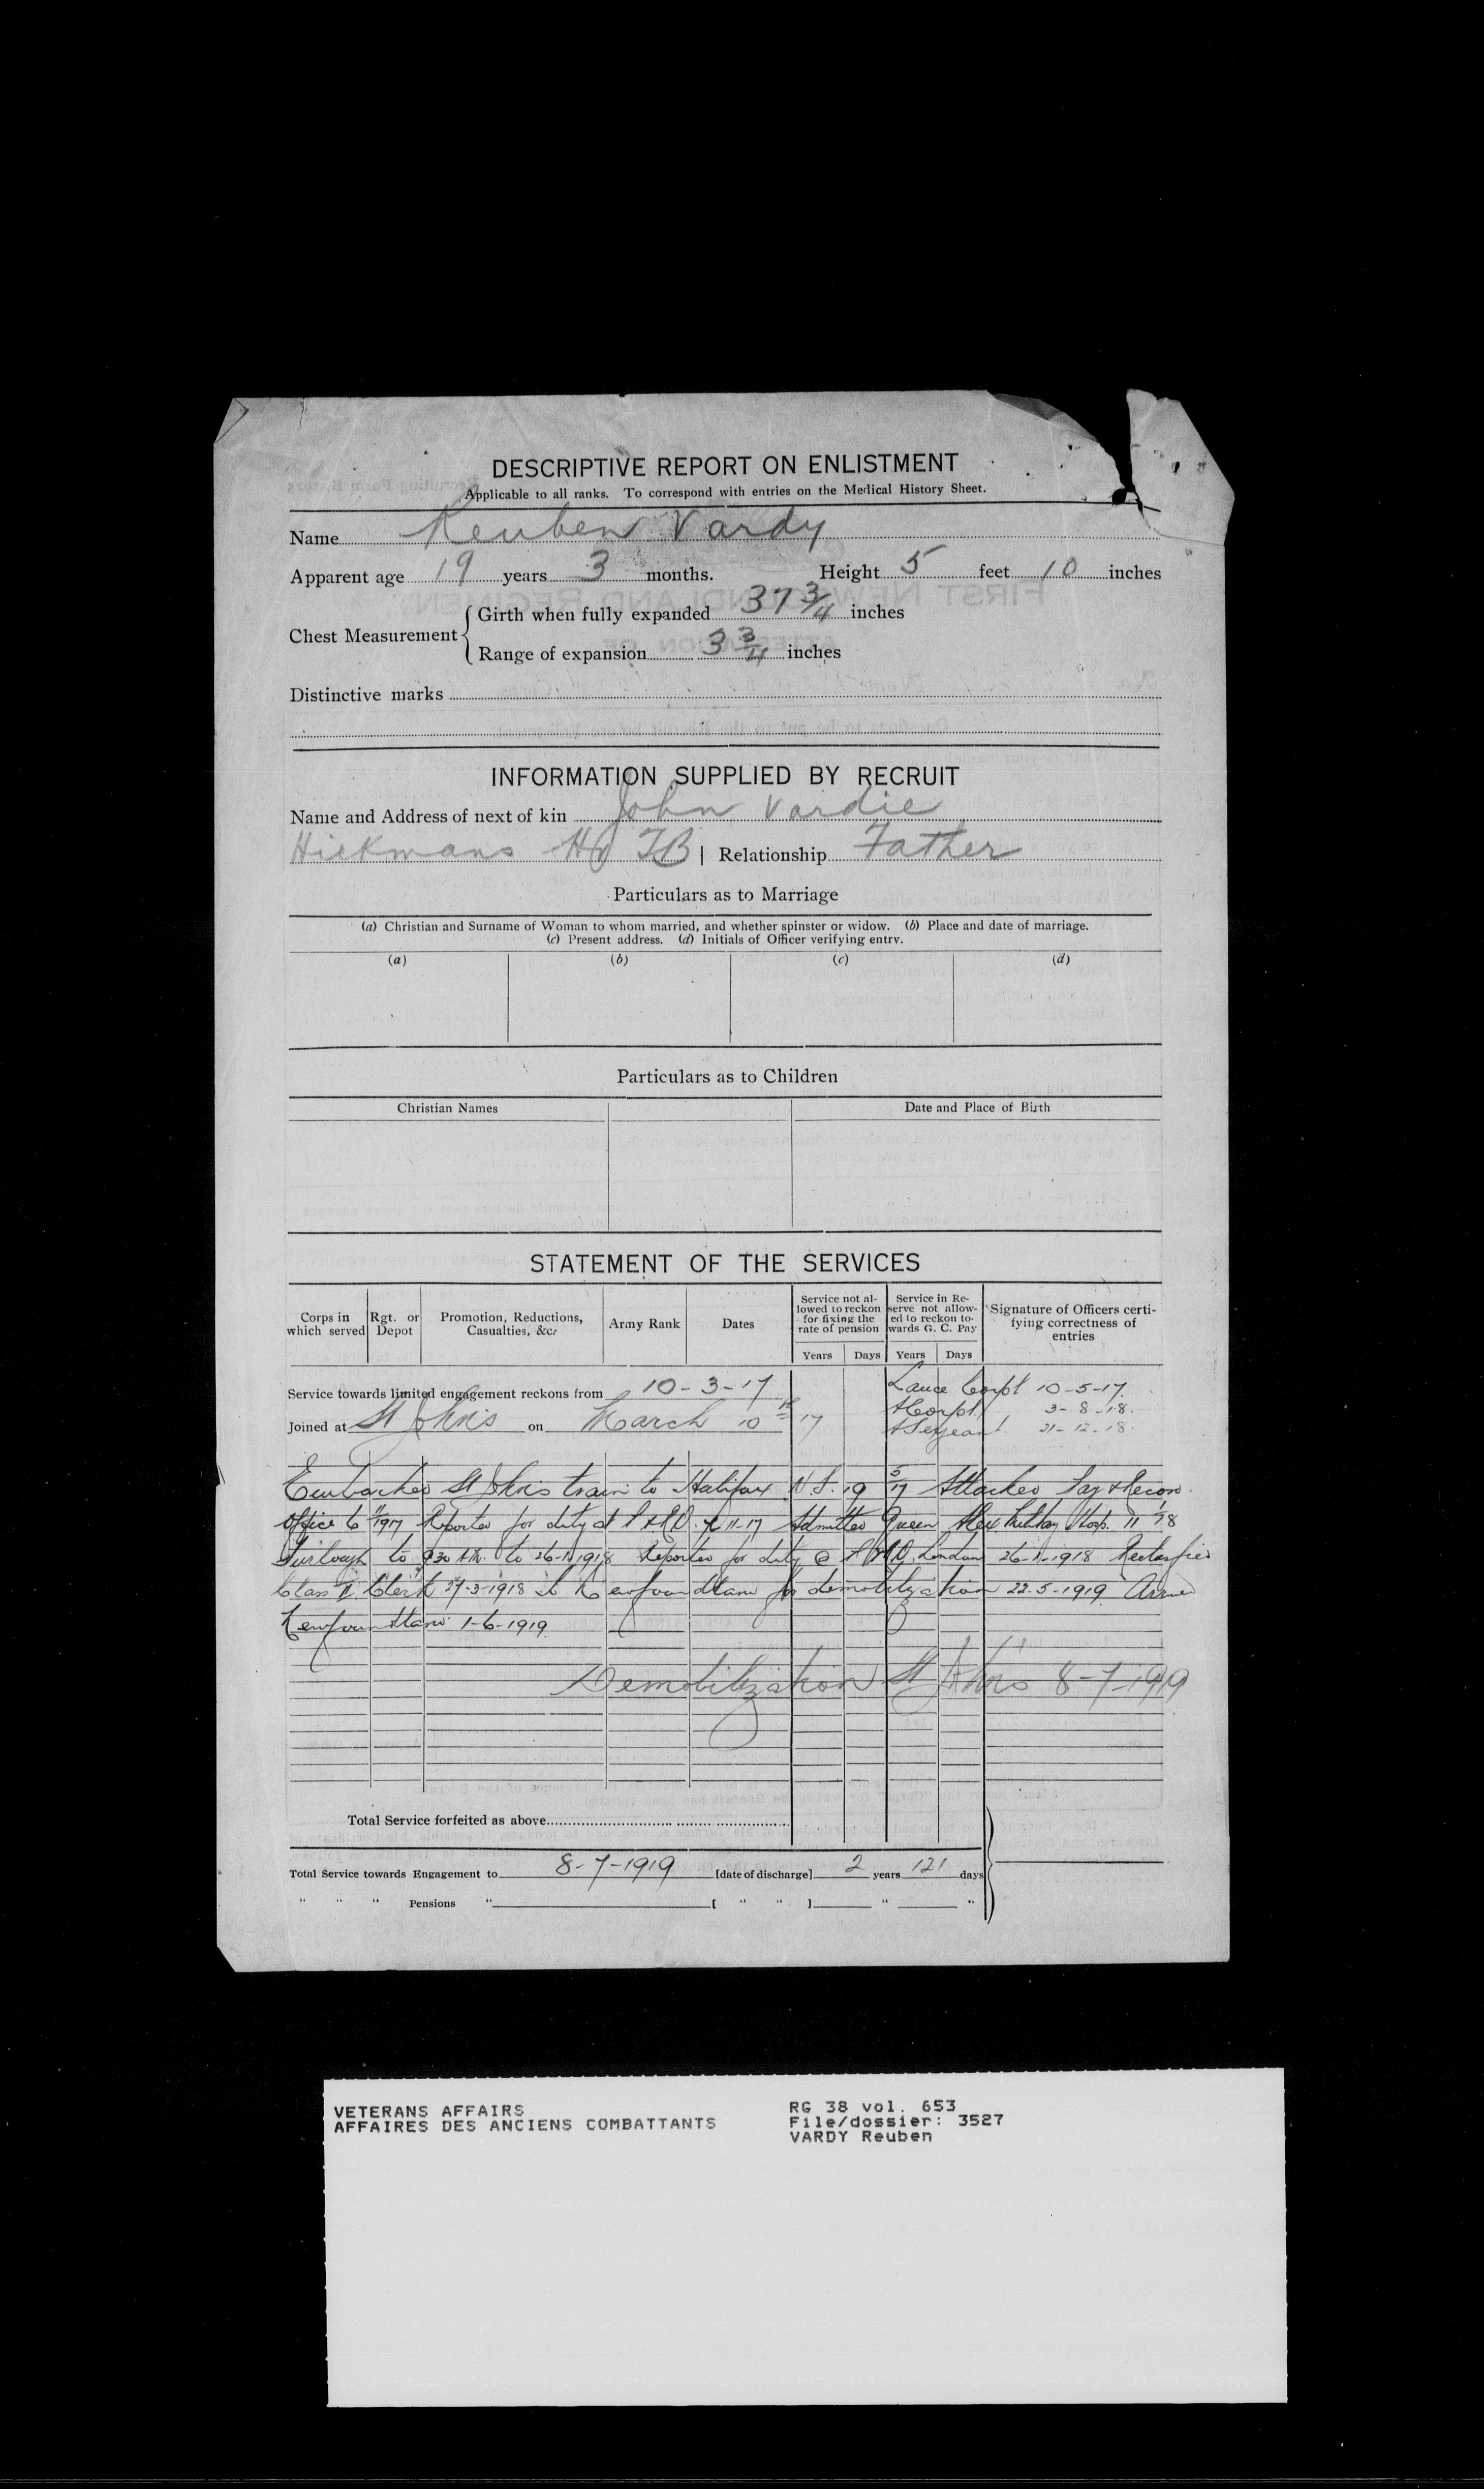 DESCRIPTIVE REPORT ON ENLISTMENT
Applicable to all ranks. To correspond with entries on the Medical History Sheet.
Name Reuben Vardy
Apparent age 19 years 3 months. Height 5 feet 10 inches
Girth when fully expanded 37 3/4 inches
Chest Measurement
Range of expansion 3 3/4 inches
Distinctive marks
INFORMATION SUPPLIED BY RECRUIT
Name and Address of next of kin John Vardie
Hickmans Hr TB | Relationship Father
Particulars as to Marriage
(a) Christian and Surname of Woman to whom married, and whether spinster or widow. (b) Place and date of marriage.
(c) Present address. (d) Initials of Officer verifying entry.
(a) (b) (c) (d)
Particulars as to Children
Christian Names Date and Place of Birth
STATEMENT OF THE SERVICES
Corps in which served Rgt. or Depot Promotion, Reductions, Casualties, &c. Army Rank Dates Service not allowed to reckon for fixing the rate of pension Service in Reserve not allowed to reckon towards G. C. Pay Signature of Officers certifying correctness of entries
Years Days Years Days
Service towards limited engagement reckons from 10-3-17 Lance Corpl 10-5-17.
A Corpl. 3-8-18.
Joined at St Johns on March 10th 17 A Sergeant 21-12-18.
Embarked St Johns train to Halifax N.S. 19 5/17 Attached Pay & Record
Office 6 1917 Reported for duty at P&RO 11-17 Admitted Queen Alex Military Hosp. 11 1/18
Furlough to 9.30 AM. to 26-1-1918 Reported for duty @ P&RO, London 26-1-1918 Reclassified
Class II Clerk 27-3-1918 To Newfoundland for demobilization 22-5-1919 Arrived
Newfoundland 1-6-1919
Demobilization St Johns 8-7-1919
Total Service forfeited as above
Total Service towards Engagement to 8-7-1919 [date of discharge] 2 years 121 days
" " " Pensions " [ " " ] " "
VETERANS AFFAIRS
AFFAIRES DES ANCIENS COMBATTANTS
RG 38 vol. 653
File/dossier: 3527
VARDY Reuben